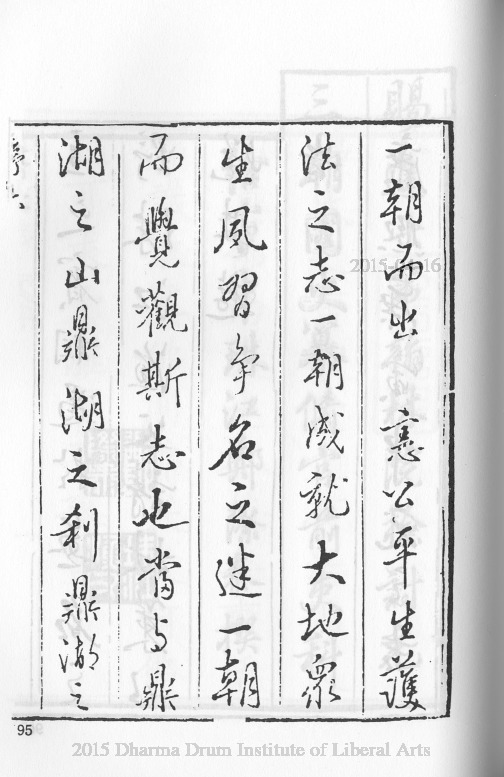 一朝而出憲公平生護
法之志一朝成就大地眾
生夙習爭名之迷一朝
而覺觀斯志也當与鼎
湖之山鼎湖之剎鼎湖之
序六
95
2015-04-16
2015 Dharma Drum Institute of Liberal Arts